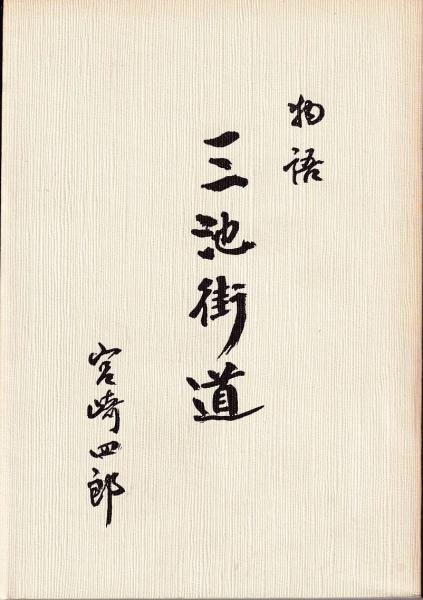 物語
三池街道
宮崎四郎